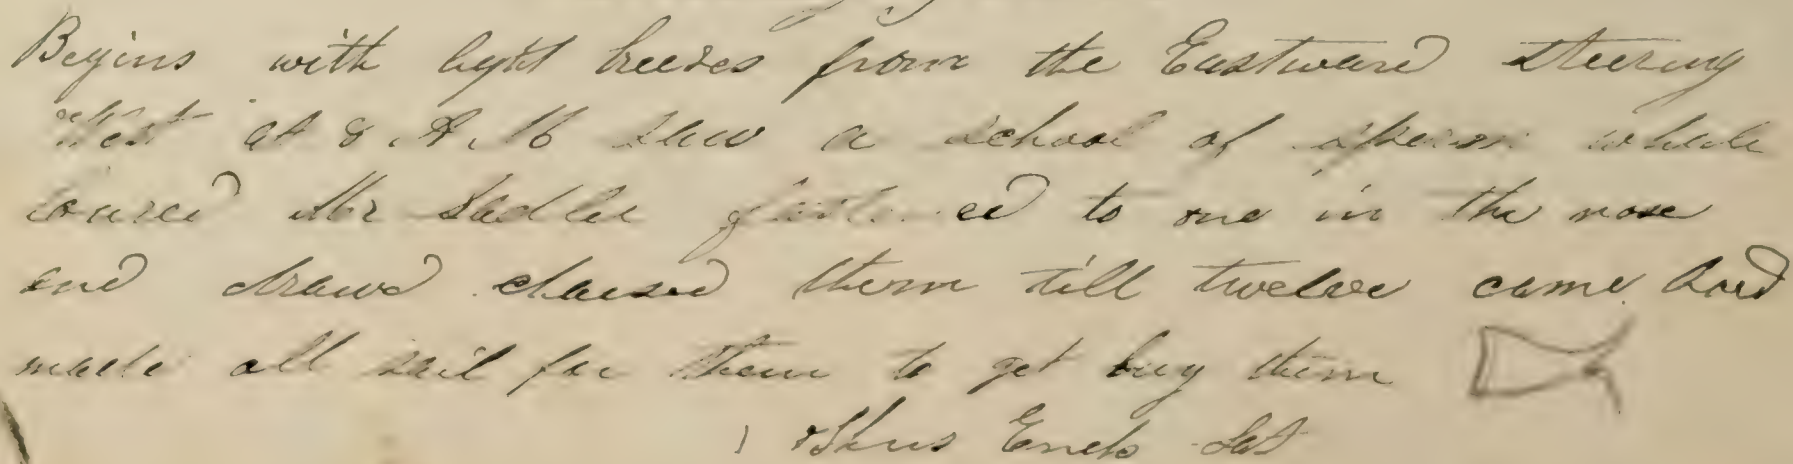 Begins with light breezes from the Eastward steering
West at 8 A.M saw a school of sperm whale
loured Mr Sadler fastened to one in the nose
and drawd chased them till twelve came bord
made all sail for them to get buy them
Thus Ends Lat